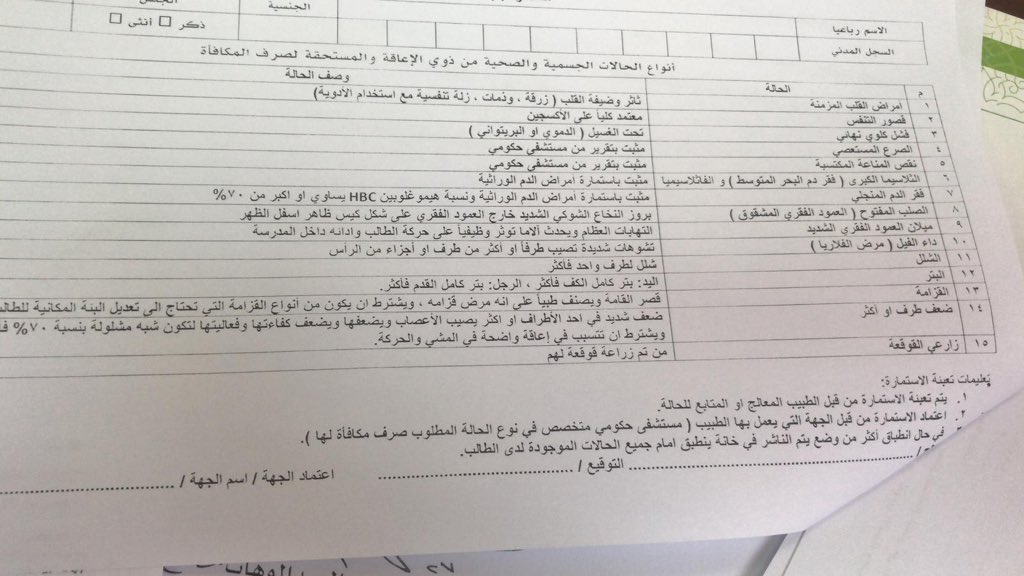 الجنسية
الجنس
ذكر □ أنثى □
الاسم رباعيا
السجل المدني
أنواع الحالات الجسمية والصحية من ذوي الإعاقة والمستحقة لصرف المكافأة
م الحالة وصف الحالة
١ امراض القلب المزمنة تاثر وضيفة القلب ( زرقة ، وذمات ، زلة تنفسية مع استخدام الأدوية)
٢ قصور التنفس معتمد كلياً على الأكسجين
٣ فشل كلوي نهائي تحت الغسيل ( الدموي او البريتواني )
٤ الصرع المستعصي مثبت بتقرير من مستشفى حكومي
٥ نقص المناعة المكتسبة مثبت بتقرير من مستشفى حكومي
٦ الثلاسيما الكبرى ( فقر دم البحر المتوسط ) و الفاثلاسيميا مثبت باستمارة امراض الدم الوراثية
٧ فقر الدم المنجلي مثبت باستمارة أمراض الدم الوراثية ونسبة هيموغلوبين HBC يساوي او اكبر من ٧٠%
٨ الصلب المفتوح ( العمود الفقري المشقوق ) بروز النخاع الشوكي الشديد خارج العمود الفقري على شكل كيس ظاهر اسفل الظهر
٩ ميلان العمود الفقري الشديد التهابات العظام ويحدث آلاما توثر وظيفياً على حركة الطالب وادائه داخل المدرسة
١٠ داء الفيل ( مرض الفلاريا ) تشوهات شديدة تصيب طرفاً أو أكثر من طرف او أجزاء من الرأس
١١ الشلل شلل لطرف واحد فأكثر
١٢ البتر اليد: بتر كامل الكف فأكثر ، الرجل: بتر كامل القدم فأكثر.
١٣ القزامة قصر القامة ويصنف طبياً على انه مرض قزامه ، ويشترط ان يكون من أنواع القزامة التي تحتاج الى تعديل البئة المكانية للطالب
١٤ ضعف طرف او أكثر ضعف شديد في احد الأطراف او اكثر يصيب الأعصاب ويضعفها ويضعف كفاءتها وفعاليتها لتكون شبه مشلولة بنسبة ٧٠%
ويشترط ان تتسبب في إعاقة واضحة في المشي والحركة.
١٥ زارعي القوقعة من تم زراعة قوقعة لهم
تعليمات تعبئة الاستمارة:
١. يتم تعبئة الاستمارة من قبل الطبيب المعالج او المتابع للحالة.
٢. اعتماد الاستمارة من قبل الجهة التي يعمل بها الطبيب ( مستشفى حكومي متخصص في نوع الحالة المطلوب صرف مكافأة لها ).
في حال انطباق أكثر من وضع يتم التاشر في خانة ينطبق امام جميع الحالات الموجودة لدى الطالب.
التوقيع / اعتماد الجهة / اسم الجهة /